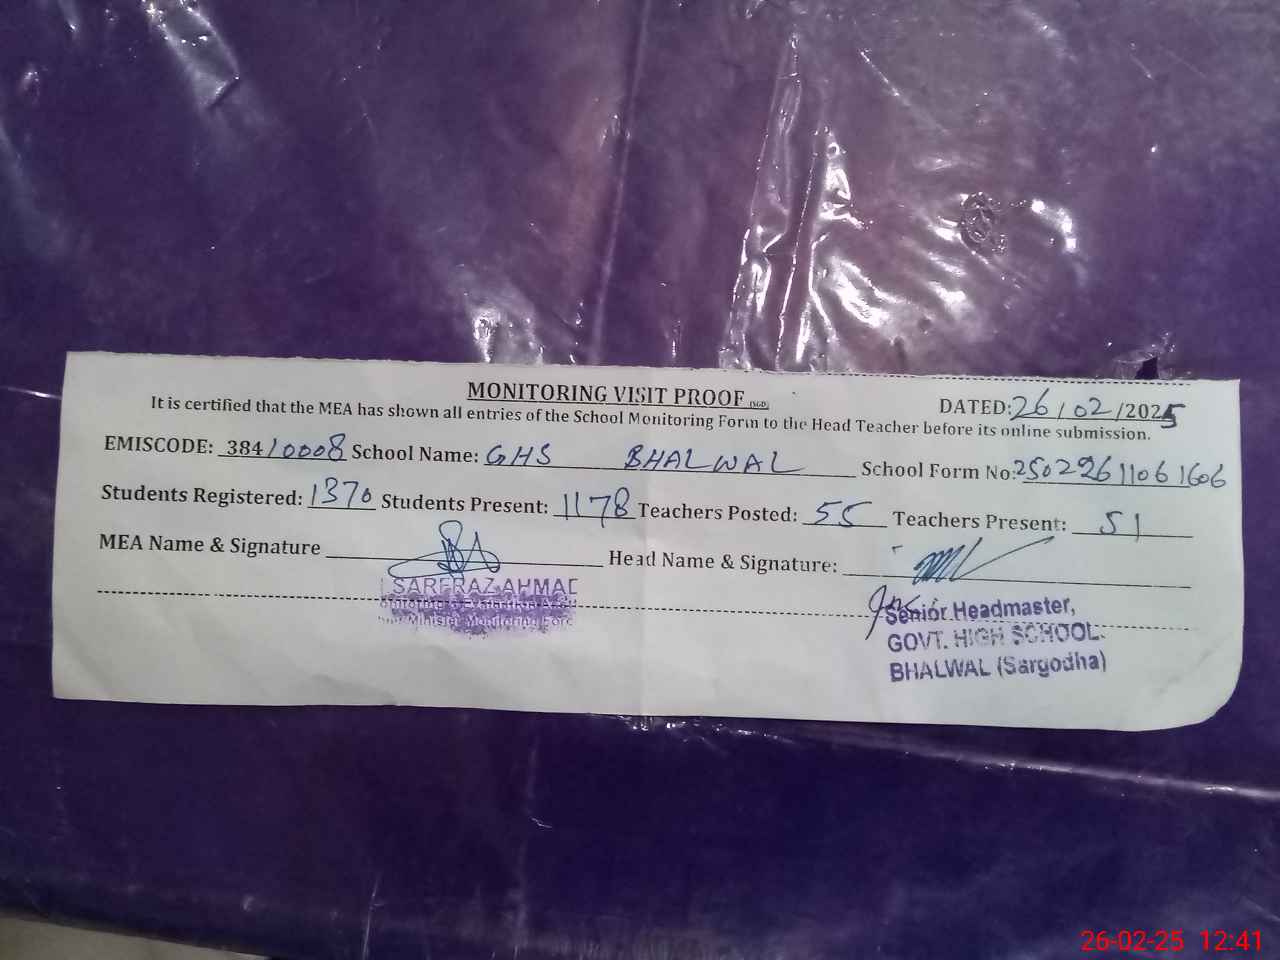 MONITORING VISIT PROOF (SGD)
DATED: 26/02/2025
It is certified that the MEA has shown all entries of the School Monitoring Form to the Head Teacher before its online submission.
EMISCODE: 38410008 School Name: GHS BHALWAL School Form No: 25022611061606
Students Registered: 1370 Students Present: 1178 Teachers Posted: 55 Teachers Present: 51
MEA Name & Signature Head Name & Signature:
SARFRAZ AHMAD
Monitoring & Evaluation
Minister Monitoring Force
Senior Headmaster,
GOVT. HIGH SCHOOL
BHALWAL (Sargodha)
26-02-25 12:41